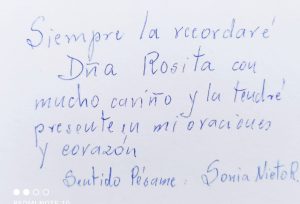 Siempre la recordaré
Dña Rosita con
mucho cariño y la tendré
presente en mi oraciones
y corazón
Sentido Pésame. Sonia Nieto R.